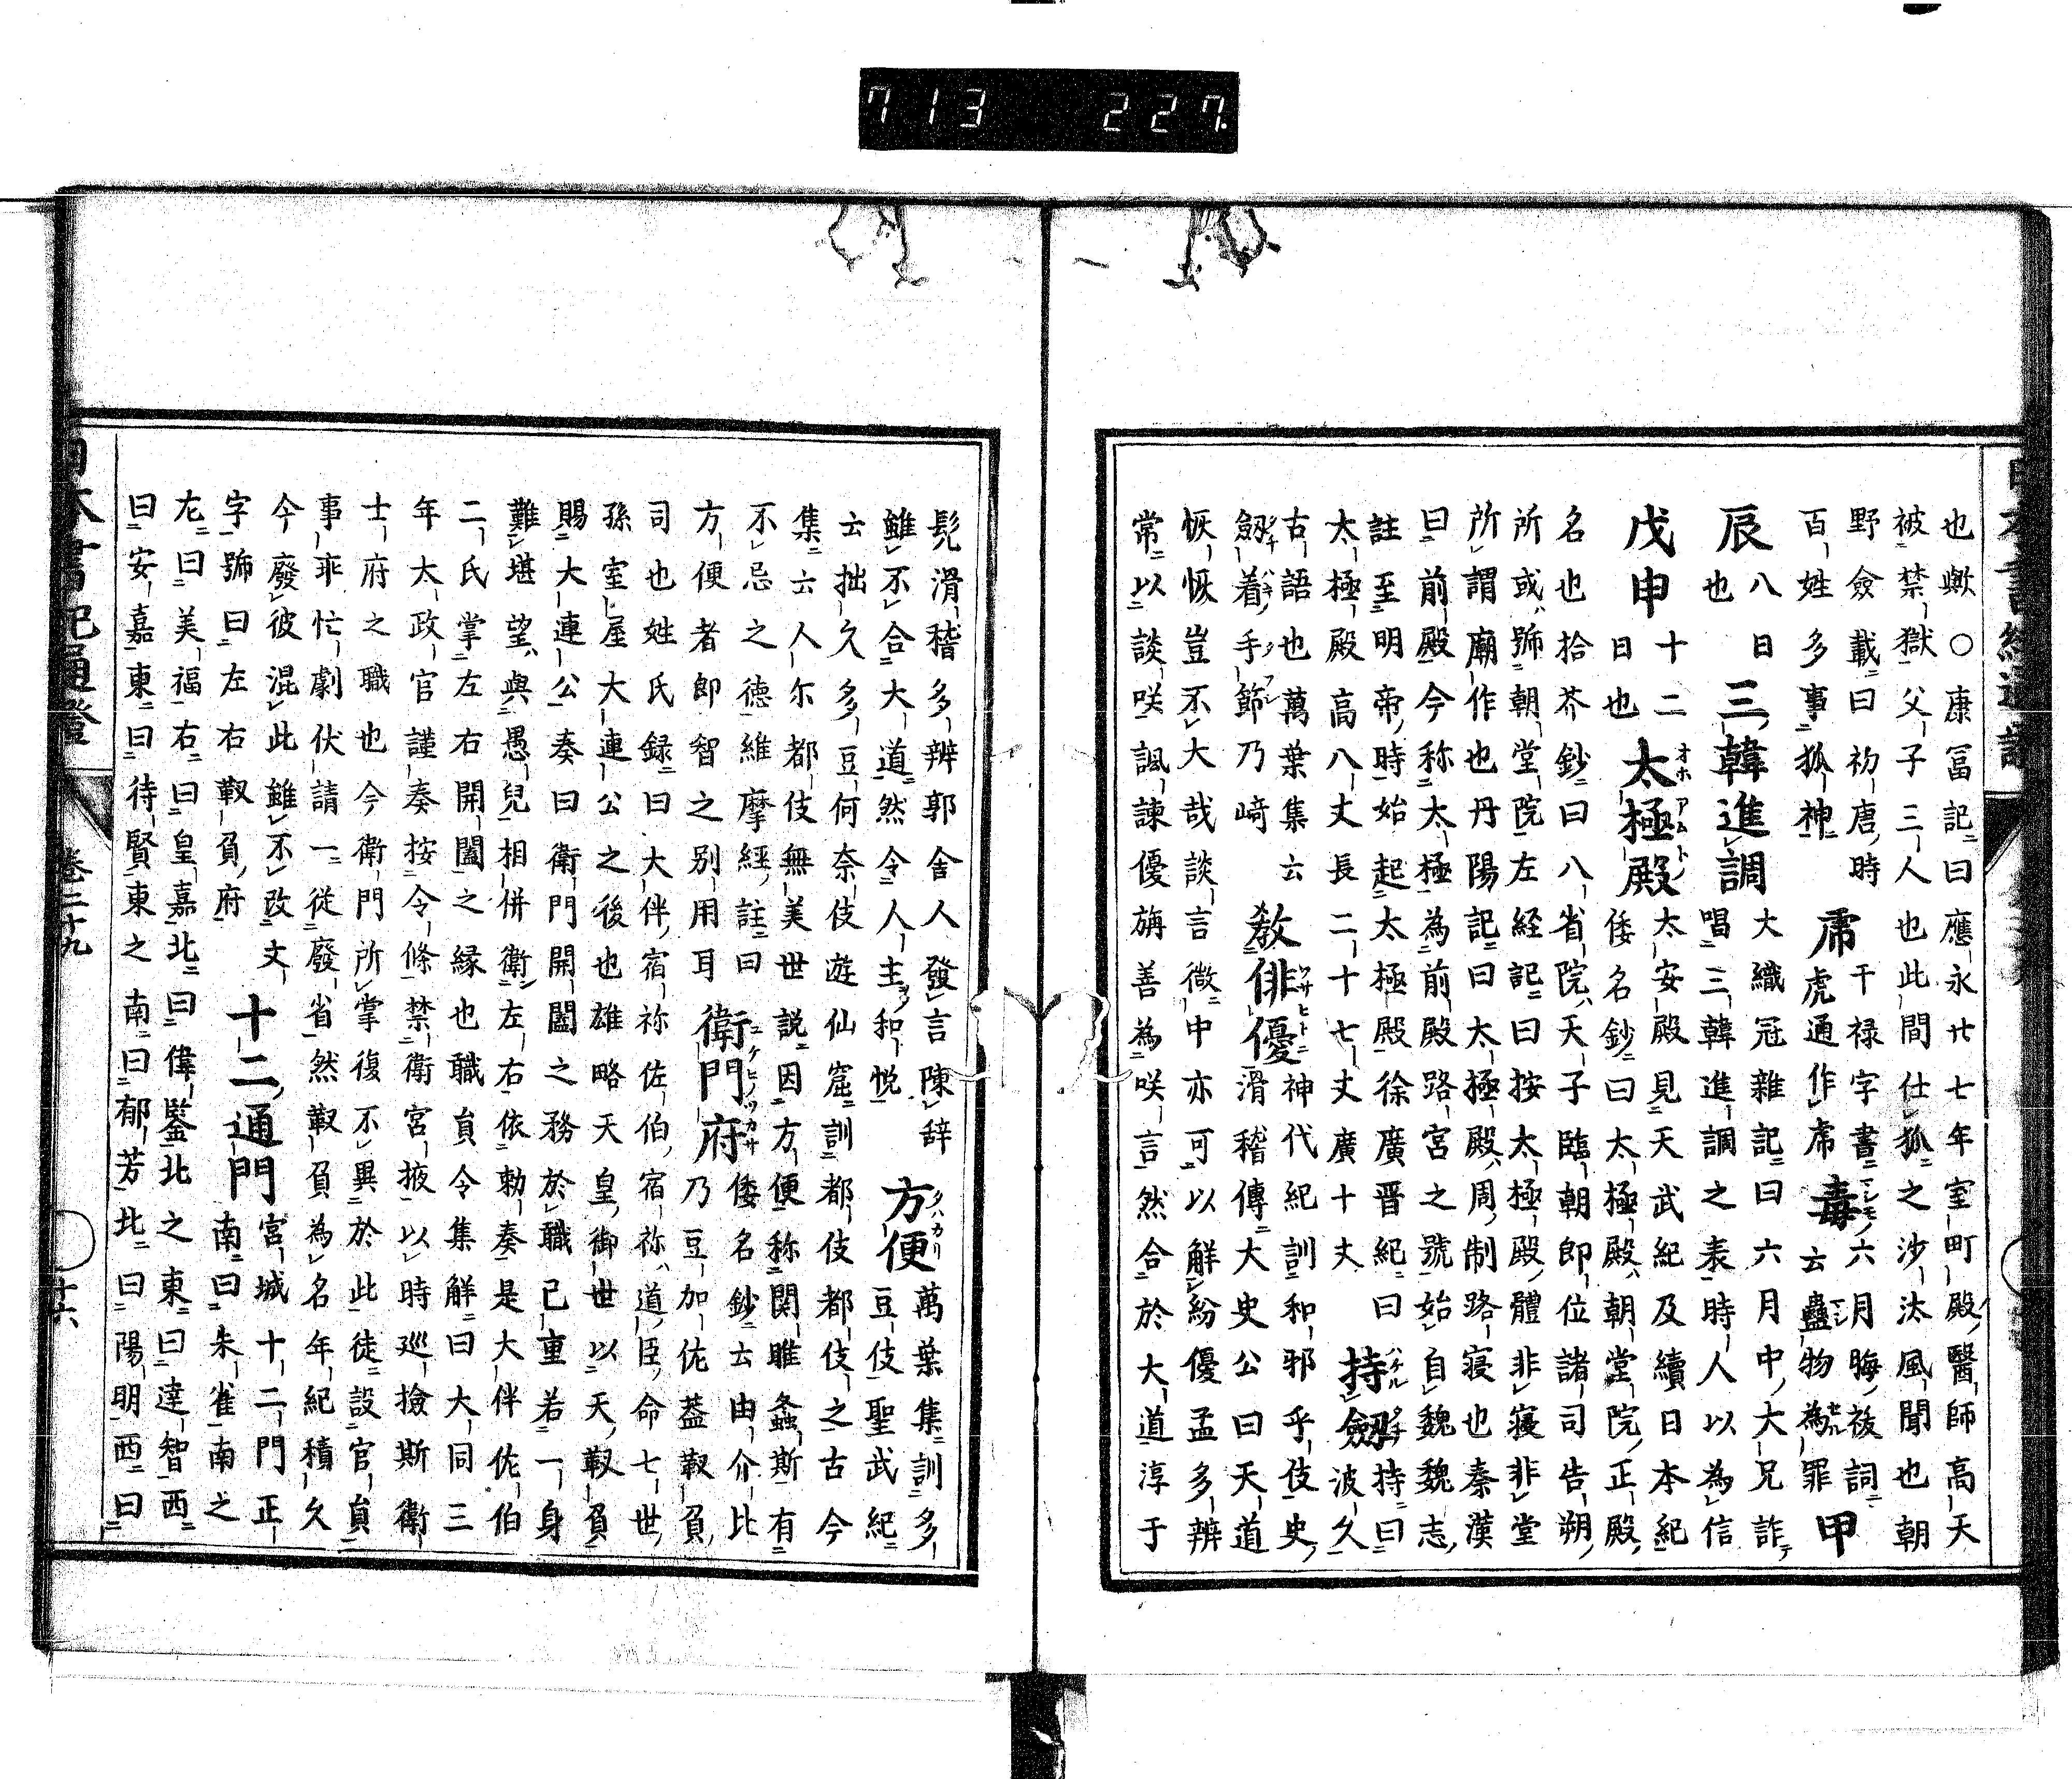 713 227.
也歟○康冨記曰應永廿七年室町殿醫師高天
被禁獄父子三人也此間仕狐之沙汰風聞也朝
野僉載曰初唐時 帍 干禄字書 六月晦祓詞
百姓多事狐神 虎通作帍 毒 云蠱物為罪 甲
辰 八日也 三韓進調 大織冠雜記曰六月中大兄詐
唱三韓進調之表時人以為信
戊申 十二日也 太極殿 太安殿見天武紀及續日本紀
倭名鈔曰太極殿朝堂院正殿
名也拾芥鈔曰八省院天子臨朝即位諸司告朔
所或號朝堂院左経記曰按太極殿體非寝非堂
所謂廟作也丹陽記曰太極殿周制路寝也秦漢
曰前殿今称太極為前殿路宮之號始自魏魏志
註至明帝時始起太極殿徐廣晋紀曰
太極殿高八丈長二十七丈廣十丈 持劔 持曰波久
古語也萬葉集云
劔着手節乃﨑 教俳優 神代紀訓和邪乎伎史
滑稽傳大史公曰天道
恢恢豈不大哉談言微中亦可以解紛優孟多辨
常以談咲諷諫優旃善為咲言然合於大道淳于
髡滑稽多辨郭舎人發言陳辞
雖不合大道然令人主和悦 方便 萬葉集訓多
豆伎聖武紀
云拙久多豆何奈伎遊仙窟訓都伎都伎之古今
集云人尓都伎無美世説因方便称関雎螽斯有
不忌之徳維摩經註曰
方便者即智之别用耳 衛門府 倭名鈔云由介比
乃豆加佐葢靫負
司也姓氏録曰大伴宿祢佐伯宿祢道臣命七世
孫室屋大連公之後也雄略天皇御世以天靫負
賜大連公奏曰衛門開闔之務於職已重若一身
難堪望與愚兒相併衛左右依勅奏是大伴佐伯
二氏掌左右開闔之縁也職員令集解曰大同三
年大政官謹奏按令條禁衛宮掖以時巡撿斯衛
士府之職也今衛門所掌復不異於此徒設官員
事乖忙劇伏請一従廢省然靫負為名年紀積久
今廢彼混此雖不改文
字號曰左右靫負府 十二通門 宮城十二門正
南曰朱雀南之
左曰美福右曰皇嘉北曰偉鑒北之東曰達智西
曰安嘉東曰待賢東之南曰郁芳北曰陽明西曰
日本書紀通證 卷三十九 十六